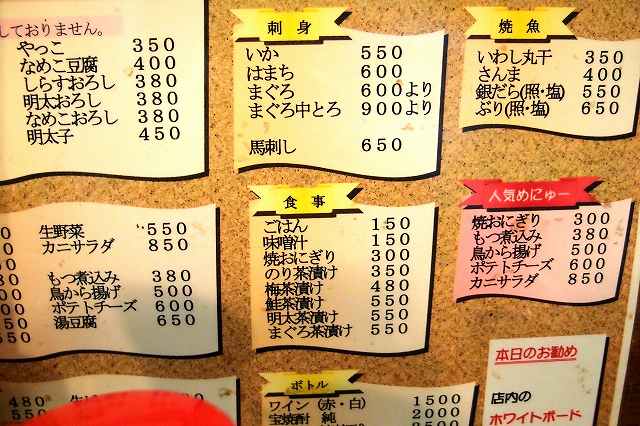 しておりません。
やっこ 350
なめこ豆腐 400
しらすおろし 380
明太おろし 380
なめこおろし 380
明太子 450
刺身
いか 550
はまち 600
まぐろ 600より
まぐろ中とろ 900より
馬刺し 650
焼魚
いわし丸干 350
さんま 400
銀だら(照・塩) 550
ぶり(照・塩) 650
生野菜 550
カニサラダ 850
もつ煮込み 380
鳥から揚げ 500
ポテトチーズ 600
湯豆腐 650
食事
ごはん 150
味噌汁 150
焼おにぎり 300
のり茶漬け 350
梅茶漬け 480
鮭茶漬け 550
明太茶漬け 550
まぐろ茶漬け 550
人気めにゅー
焼おにぎり 300
もつ煮込み 380
鳥から揚げ 500
ポテトチーズ 600
カニサラダ 850
480
550
ボトル
ワイン(赤・白) 1500
宝焼酎 純 2000
本日のお勧め
店内の
ホワイトボード